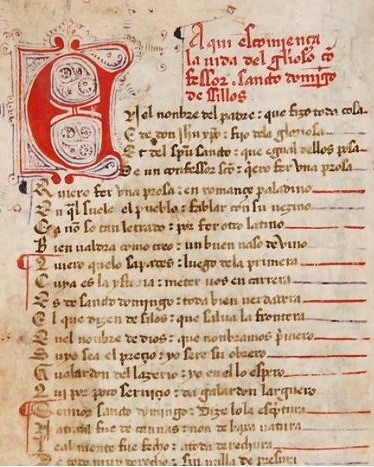 Aqui escomiença
la vida del glioso cō
fessor Sancto domīgo
de Sillos
En el nombre del padre : que fizo toda cosa
E de don jhū xp̄o : fijo dela gloriosa
E del sp̄u sancto : que egual dellos posa
De un confessor scō : q̄ero fer vna prosa
Quiero fer vna prosa : en romanço paladino
En q̄l suele el pueblo : fablar con su vezino
Ca nō so tan letrado : por fer otro latino
Bien valdra como creo : un buen vaso de vino
Quiero quelo sapades : luego dela primera
Cuya es la ystoria : meter vos en carrera
Es de sancto domingo : toda bien verdadera
El que dizen de silos : que salua la frontera
Enel nombre de dios : que nonbramos p̄mero
Suyo sea el preçio : yo sere su obrero
Gualardon del lazerio : yo en el lo esp̄ro
Qui por poco seruiço : da galardon larguero
Sennor sancto domingo : dize lo la esc̄ptura
Natural fue de cannas : non de baxa natura
Lealmente fue fecho : a toda derechura
De todo muy derecho : sin nulla depresura